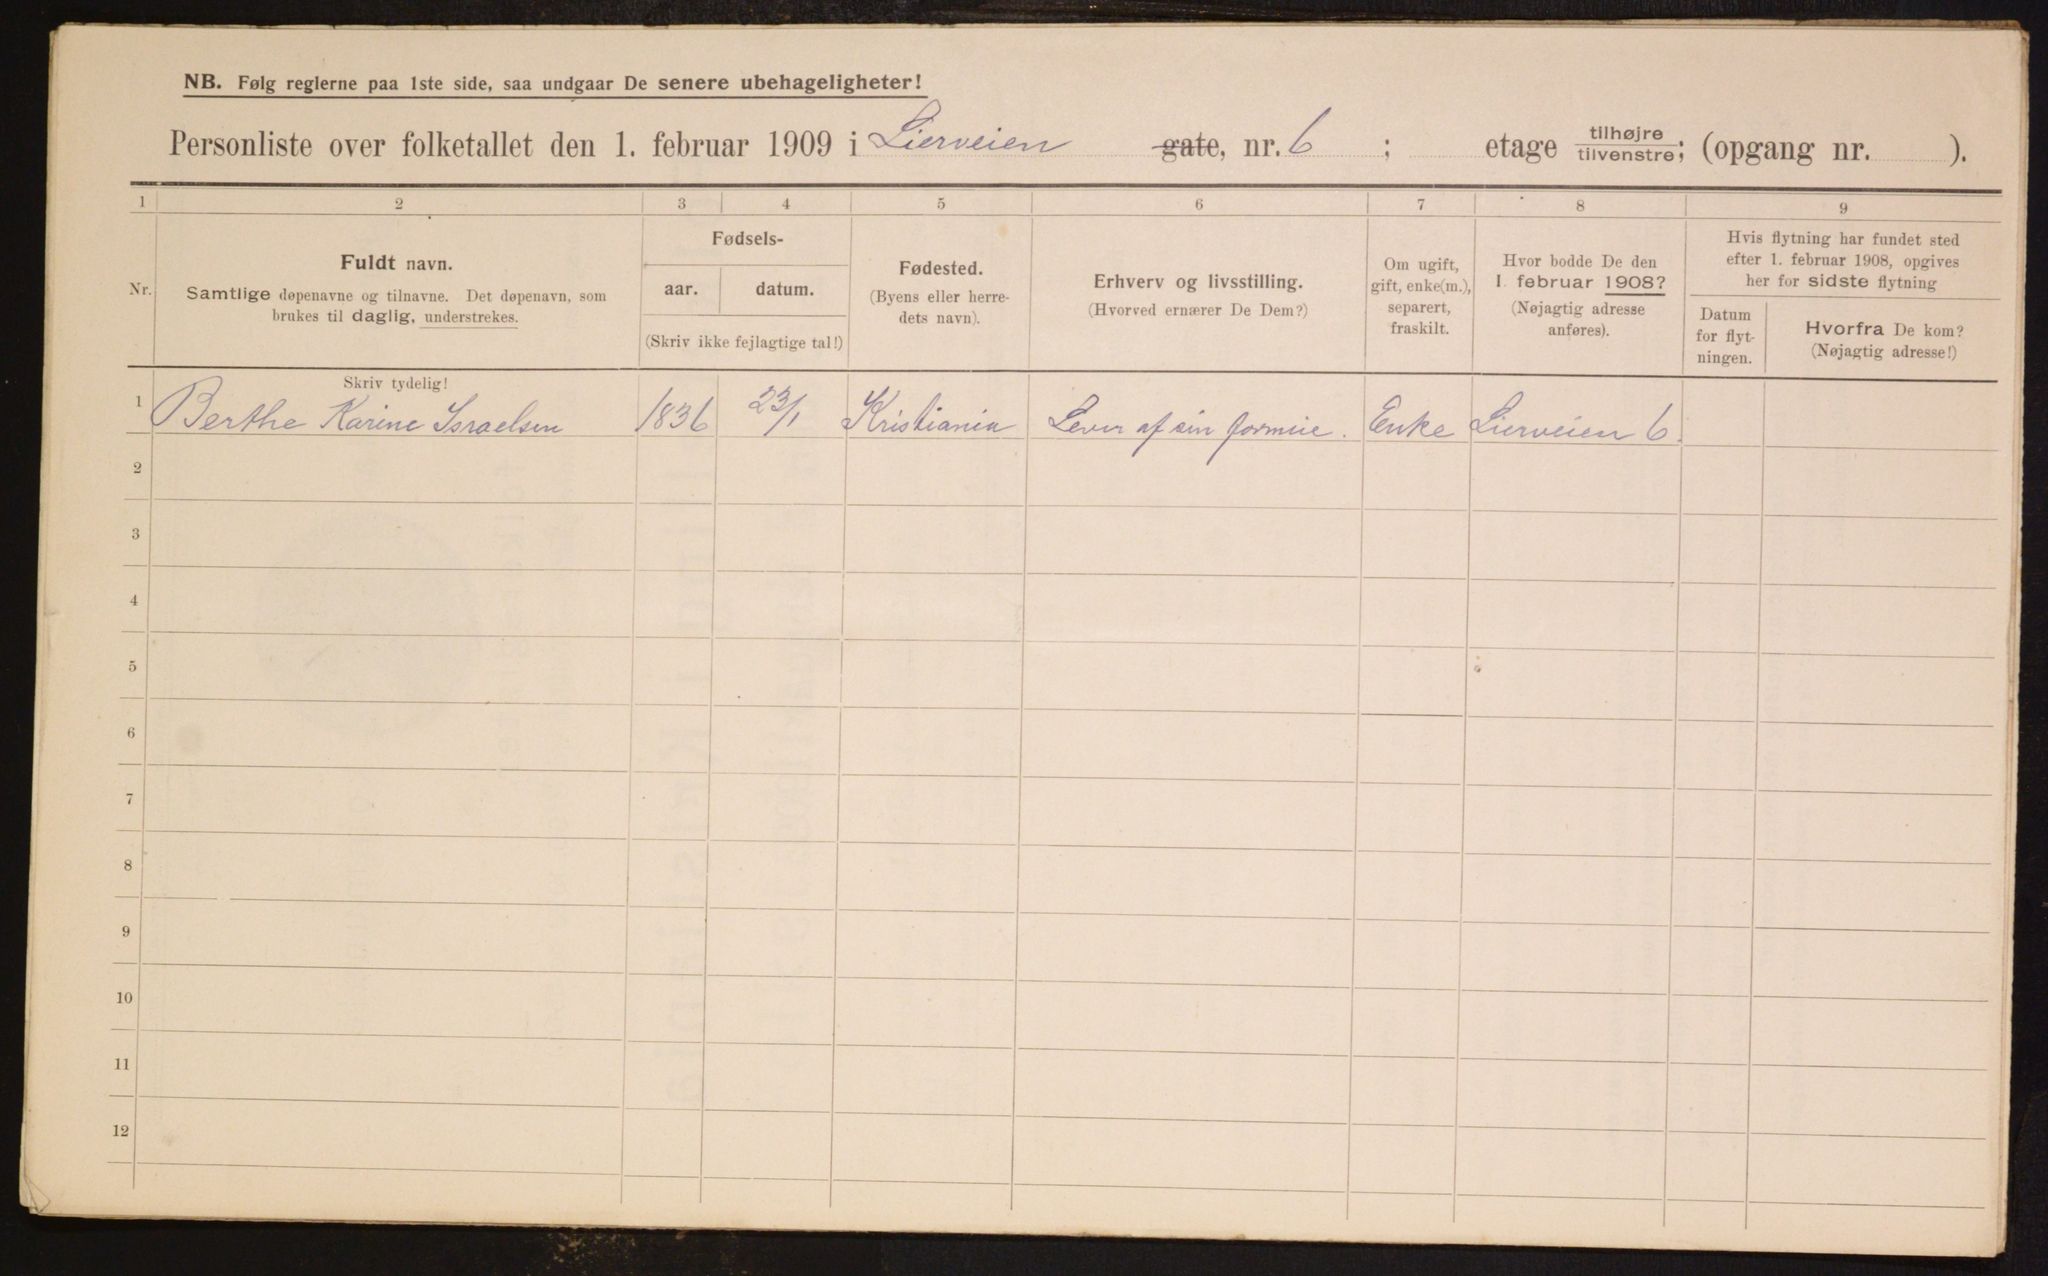 NB. Følg reglerne paa 1ste side, saa undgaar De senere ubehageligheter!
Personliste over folketallet den 1. februar 1909 i Lierveien gate, nr. 6 ; etage tilhøjre tilvenstre; (opgang nr. ).
1 2 3 4 5 6 7 8 9
Nr.
Fuldt navn.
Samtlige døpenavne og tilnavne. Det døpenavn, som
brukes til daglig, understrekes.
Skriv tydelig!
Fødsels-
aar. datum.
(Skriv ikke fejlagtige tal!)
Fødested.
(Byens eller herre-
dets navn).
Erhverv og livsstilling.
(Hvorved ernærer De Dem?)
Om ugift,
gift, enke(m.),
separert,
fraskilt.
Hvor bodde De den
1. februar 1908?
(Nøjagtig adresse
anføres).
Hvis flytning har fundet sted
efter 1. februar 1908, opgives
her for sidste flytning
Datum
for flyt-
ningen.
Hvorfra De kom?
(Nøjagtig adresse!)
1 Berthe Karine Israelsen 1836 23/1 Kristiania Lever af sin formue. Enke Lierveien 6.
2
3
4
5
6
7
8
9
10
11
12